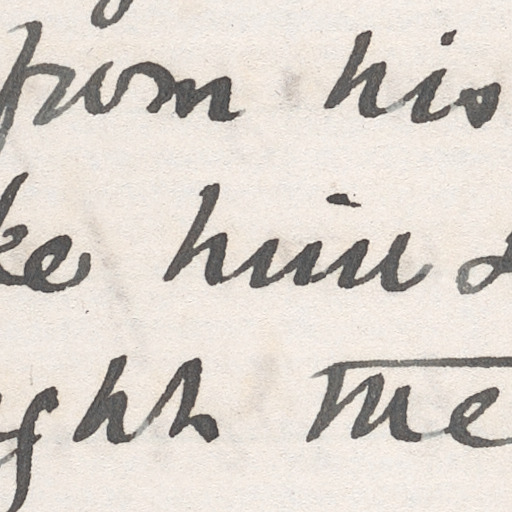 from his
ke him &
ght the